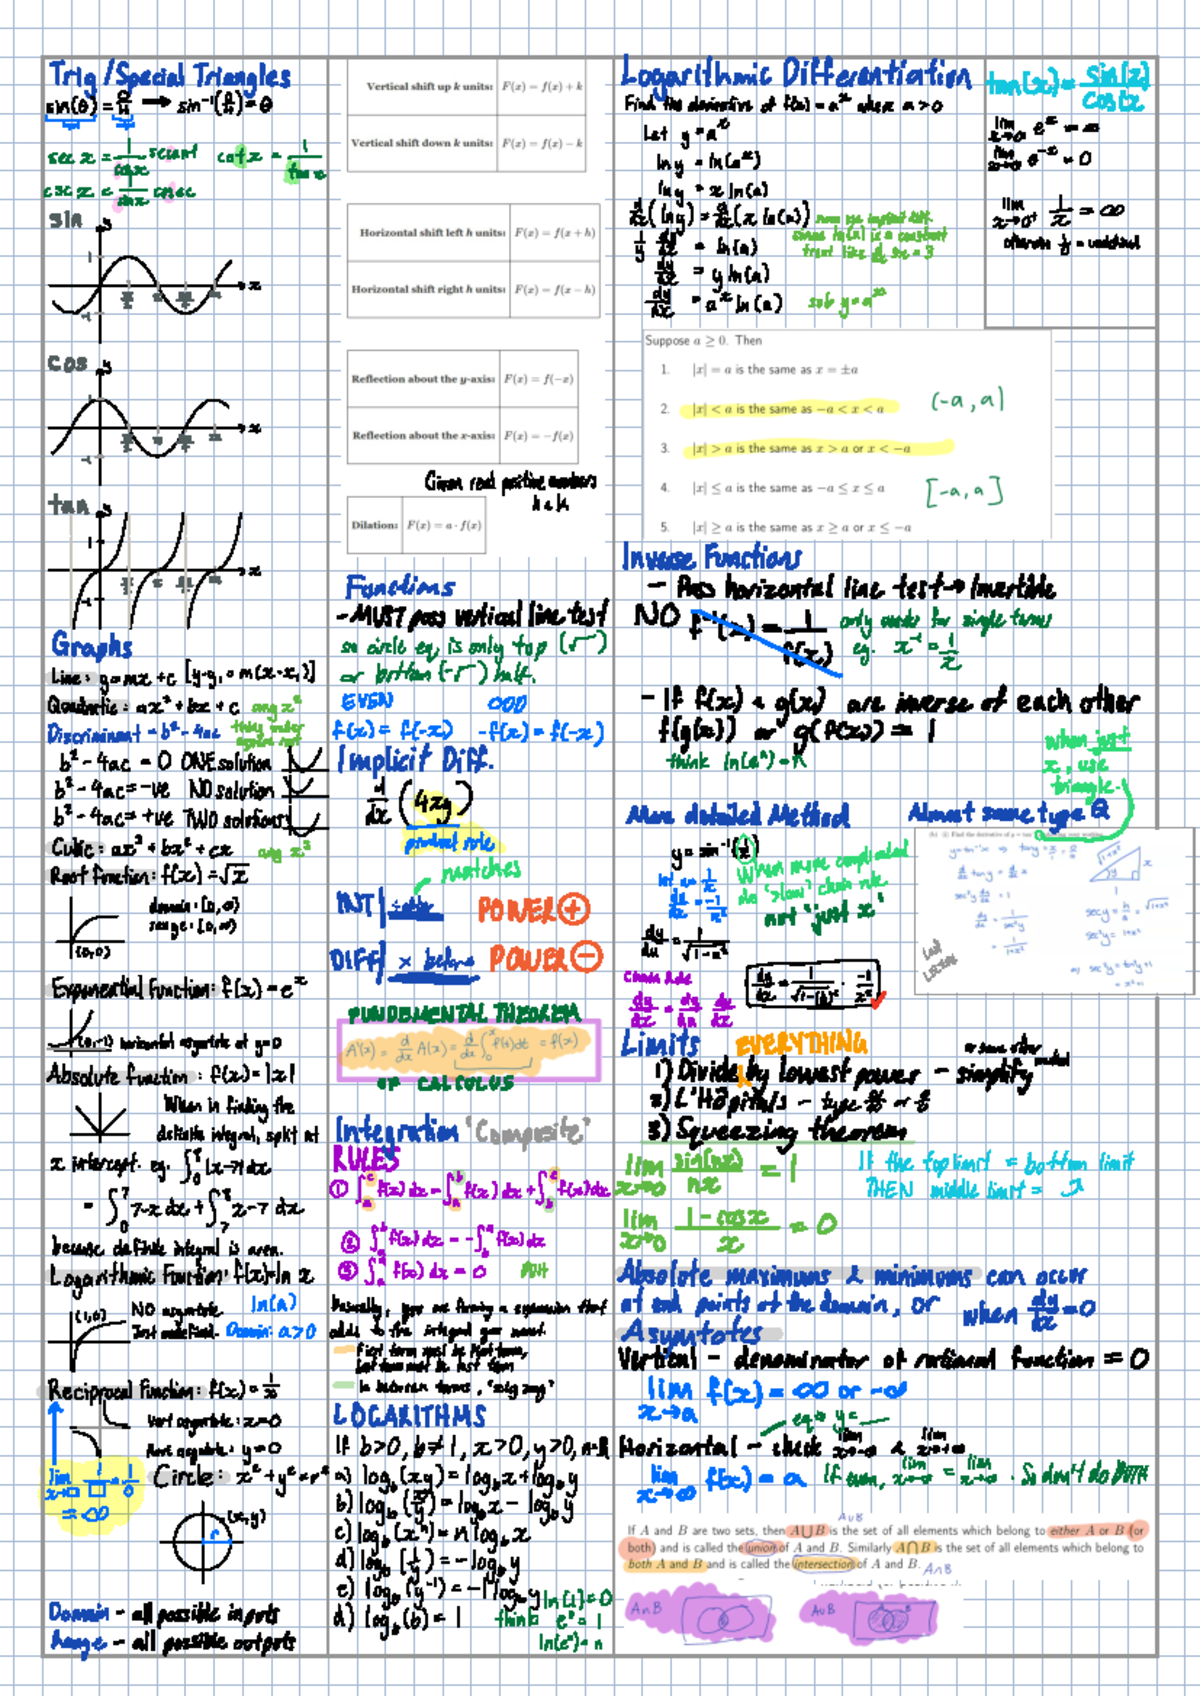 Trig/Special Triangles
sin(θ) = O/H → sin⁻¹(O/H) = θ
sec x = 1/cos x secant cot x = 1/tan x
csc x = 1/sin x cosec
sin
cos
tan
Graphs
Line: y = mx + c [y-y₁ = m(x-x₁)]
Quadratic: ax² + bx + c any x²
Discriminant = b² - 4ac
b² - 4ac = 0 ONE solution
b² - 4ac = -ve NO solution
b² - 4ac = +ve TWO solutions
Cubic: ax³ + bx² + cx any x³
Root function: f(x) = √x
domain: [0, ∞)
range: [0, ∞)
(0,0)
Exponential Function: f(x) = eˣ
horizontal asymptote at y=0
Absolute function: f(x) = |x|
When in finding the
definite integral, split at
x intercept. eg. ∫₀⁸ |x-7| dx
= ∫₀⁷ 7-x dx + ∫₇⁸ x-7 dx
because definite integral is area.
Logarithmic Function: f(x) = ln x
(1,0)
NO asymptote ln(a)
Just undefined. Domain: a>0
Reciprocal Function: f(x) = 1/x
Vert asymptote: x=0
Hori asymptote: y=0
= ∞
Circle: x² + y² = r²
(x,y)
r
Domain - all possible inputs
Range - all possible outputs
Vertical shift up k units: F(x) = f(x) + k
Vertical shift down k units: F(x) = f(x) − k
Horizontal shift left h units: F(x) = f(x + h)
Horizontal shift right h units: F(x) = f(x − h)
Reflection about the y-axis: F(x) = f(−x)
Reflection about the x-axis: F(x) = −f(x)
Given real positive numbers
h & k
Dilation: F(x) = a · f(x)
Functions
- MUST pass vertical line test
so circle eq. is only top (√)
or bottom (-√) half.
EVEN ODD
f(x) = f(-x) -f(x) = f(-x)
Implicit Diff.
d/dx (4xy)
product rule
matches
INT POWER +
DIFF x before POWER −
FUNDEMENTAL THEOREM
A'(x) = d/dx A(x) = d/dx ∫₀ˣ f(t)dt = f(x)
OF CALCULUS
Integration 'Composite'
RULES
① ∫ₐᶜ f(x) dx = ∫ₐᵇ f(x) dx + ∫ᵇᶜ f(x) dx
② ∫ₐᵇ f(x) dx = -∫ᵇₐ f(x) dx
③ ∫ₐᵃ f(x) dx = 0
basically, you are forming a expansion that
adds to the integral you want.
First term must be first term,
last term must be last term
In between terms, "zig zag"
LOGARITHMS
If b>0, b≠1, x>0, y>0, n∈R
a) log_b(xy) = log_b x + log_b y
b) log_b(x/y) = log_b x - log_b y
c) log_b(xⁿ) = n log_b x
d) log_b(1/y) = -log_b y
e) log_b(y⁻¹) = -1 log_b y
log_b(b) = 1
ln(1) = 0
think e⁰ = 1
ln(eⁿ) = n
Logarithmic Differentiation
Find the derivative of f(x) = aˣ where a > 0
Let y = aˣ
ln y = ln(aˣ)
ln y = x ln(a)
d/dx (ln y) = d/dx (x ln(a)) now use implicit diff.
since ln(a) is a constant
1/y dy/dx = ln(a)
dy/dx = y ln(a)
dy/dx = aˣ ln(a) sub y = aˣ
tan(x) = sin(x)/cos(x)
lim x→∞ eˣ = ∞
lim x→∞ e⁻ˣ = 0
lim x→0⁺ 1/x = ∞
otherwise 1/0 = undefined
Suppose a ≥ 0. Then
1. |x| = a is the same as x = ±a
2. |x| < a is the same as −a < x < a (-a, a)
3. |x| > a is the same as x > a or x < −a
4. |x| ≤ a is the same as −a ≤ x ≤ a [-a, a]
5. |x| ≥ a is the same as x ≥ a or x ≤ −a
Inverse Functions
- Pass horizontal line test → Invertible
NO f⁻¹(x) = 1/f(x) only works for single terms
eg. x⁻¹ = 1/x
- If f(x) & g(x) are inverse of each other
f(g(x)) or g(f(x)) = 1
think ln(eˣ) = x
when just
x, use
triangle.
More detailed Method
y = sin⁻¹(1/x)
When more complicated
do "slow" chain rule
not "just x"
let u = 1/x
du/dx = -1/x²
dy/du = 1/√(1-u²)
Chain Rule
dy/dx = dy/du · du/dx
dy/dx = 1/√(1-(1/x)²) · -1/x²
Almost same type Q
(b) (i) Find the derivative of y = tan
y = tan⁻¹x ⇒ tan y = x
d/dx tan y = d/dx x
sec²y dy/dx = 1
dy/dx = 1/sec²y
= 1/(1+x²)
sec y = √(1+x²)
sec²y = 1+x²
⇒ sec²y = tan²y + 1
= x² + 1
Limits EVERYTHING
1) Divide by lowest power - simplify
2) L'Hôpitals - type ∞/∞ or 0/0
3) Squeezing theorem
lim x→0 sin(nx)/nx = 1
If the top limit = bottom limit
THEN middle limit =
lim x→0 (1-cos x)/x = 0
Absolute maximums & minimums can occur
at end points of the domain, or when dy/dx = 0
Asymtotes
Vertical - denominator of rational function = 0
lim x→a f(x) = ∞ or -∞
eq → y = __
Horizontal - check lim x→-∞ & lim x→+∞
lim x→∞ f(x) = a If even, lim x→∞ = lim x→-∞ . So don't do BOTH
A∪B
If A and B are two sets, then A⋃B is the set of all elements which belong to either A or B (or
both) and is called the union of A and B. Similarly A⋂B is the set of all elements which belong to
both A and B and is called the intersection of A and B. A∩B
A∩B
A∪B